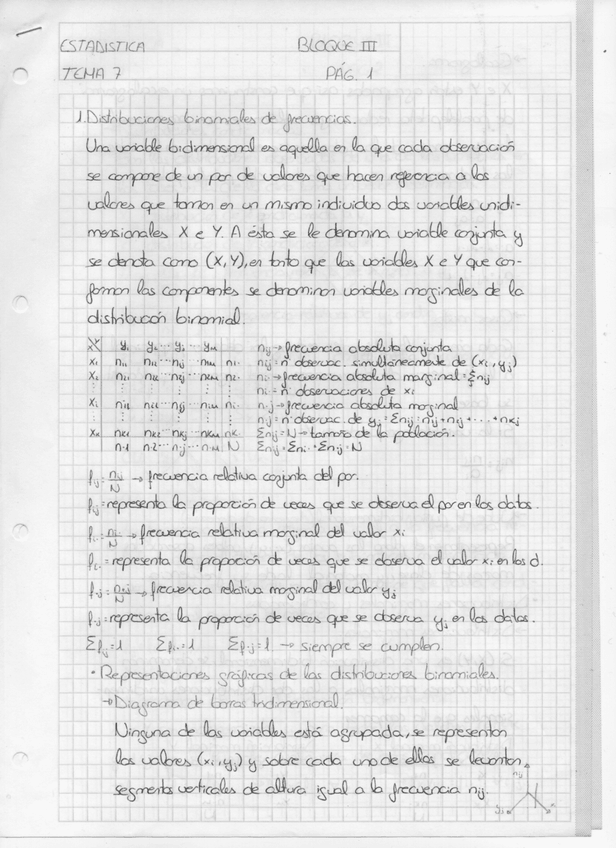 ESTADISTICA BLOQUE III
TEMA 7 PÁG. 1
1. Distribuciones binomiales de frecuencias.
Una variable bidimensional es aquella en la que cada observación
se compone de un par de valores que hacen referencia a los
valores que toman en un mismo individuo dos variables unidi-
mensionales X e Y. A ésta se le denomina variable conjunta y
se denota como (X, Y), en tanto que las variables X e Y que con-
forman las componentes se denominan variables marginales de la
distribución binomial.
y₁ y₂ ... yⱼ ... nᵢⱼ → frecuencia absoluta conjunta
x₁ n₁₁ n₁₂ ... n₁ⱼ ... n₁. nᵢⱼ = nº observac. simultáneamente de (xᵢ, yⱼ)
nᵢ. → frecuencia absoluta marginal = Σnᵢⱼ
nᵢ. = nº observaciones de xᵢ
xᵢ n.ⱼ → frecuencia absoluta marginal
n.ⱼ = nº observac. de yⱼ = Σnᵢⱼ = n₁ⱼ + n₂ⱼ + ... + nₖⱼ
Σnᵢⱼ = N → tamaño de la población.
n.₁ n.₂ ... n.ⱼ ... N Σnᵢⱼ = Σnᵢ. = Σn.ⱼ = N
fᵢⱼ = nᵢⱼ/N → frecuencia relativa conjunta del par.
fᵢⱼ = representa la proporción de veces que se observa el par en los datos.
fᵢ. = nᵢ./N → frecuencia relativa marginal del valor xᵢ
fᵢ. = representa la proporción de veces que se observa el valor xᵢ en los d.
f.ⱼ = n.ⱼ/N → frecuencia relativa marginal del valor yⱼ
f.ⱼ = representa la proporción de veces que se observa yⱼ en los datos.
Σfᵢⱼ = 1 Σfᵢ. = 1 Σf.ⱼ = 1 → siempre se cumplen.
• Representaciones gráficas de las distribuciones binomiales.
→ Diagrama de barras tridimensional.
Ninguna de las variables está agrupada, se representan
los valores (xᵢ, yⱼ) y sobre cada uno de ellos se levantan
segmentos verticales de altura igual a la frecuencia nᵢⱼ.